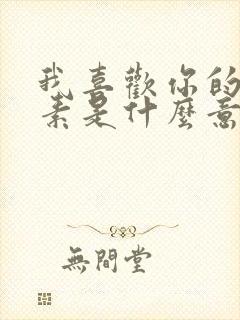 我喜歡你的
素是什麼意
無間堂